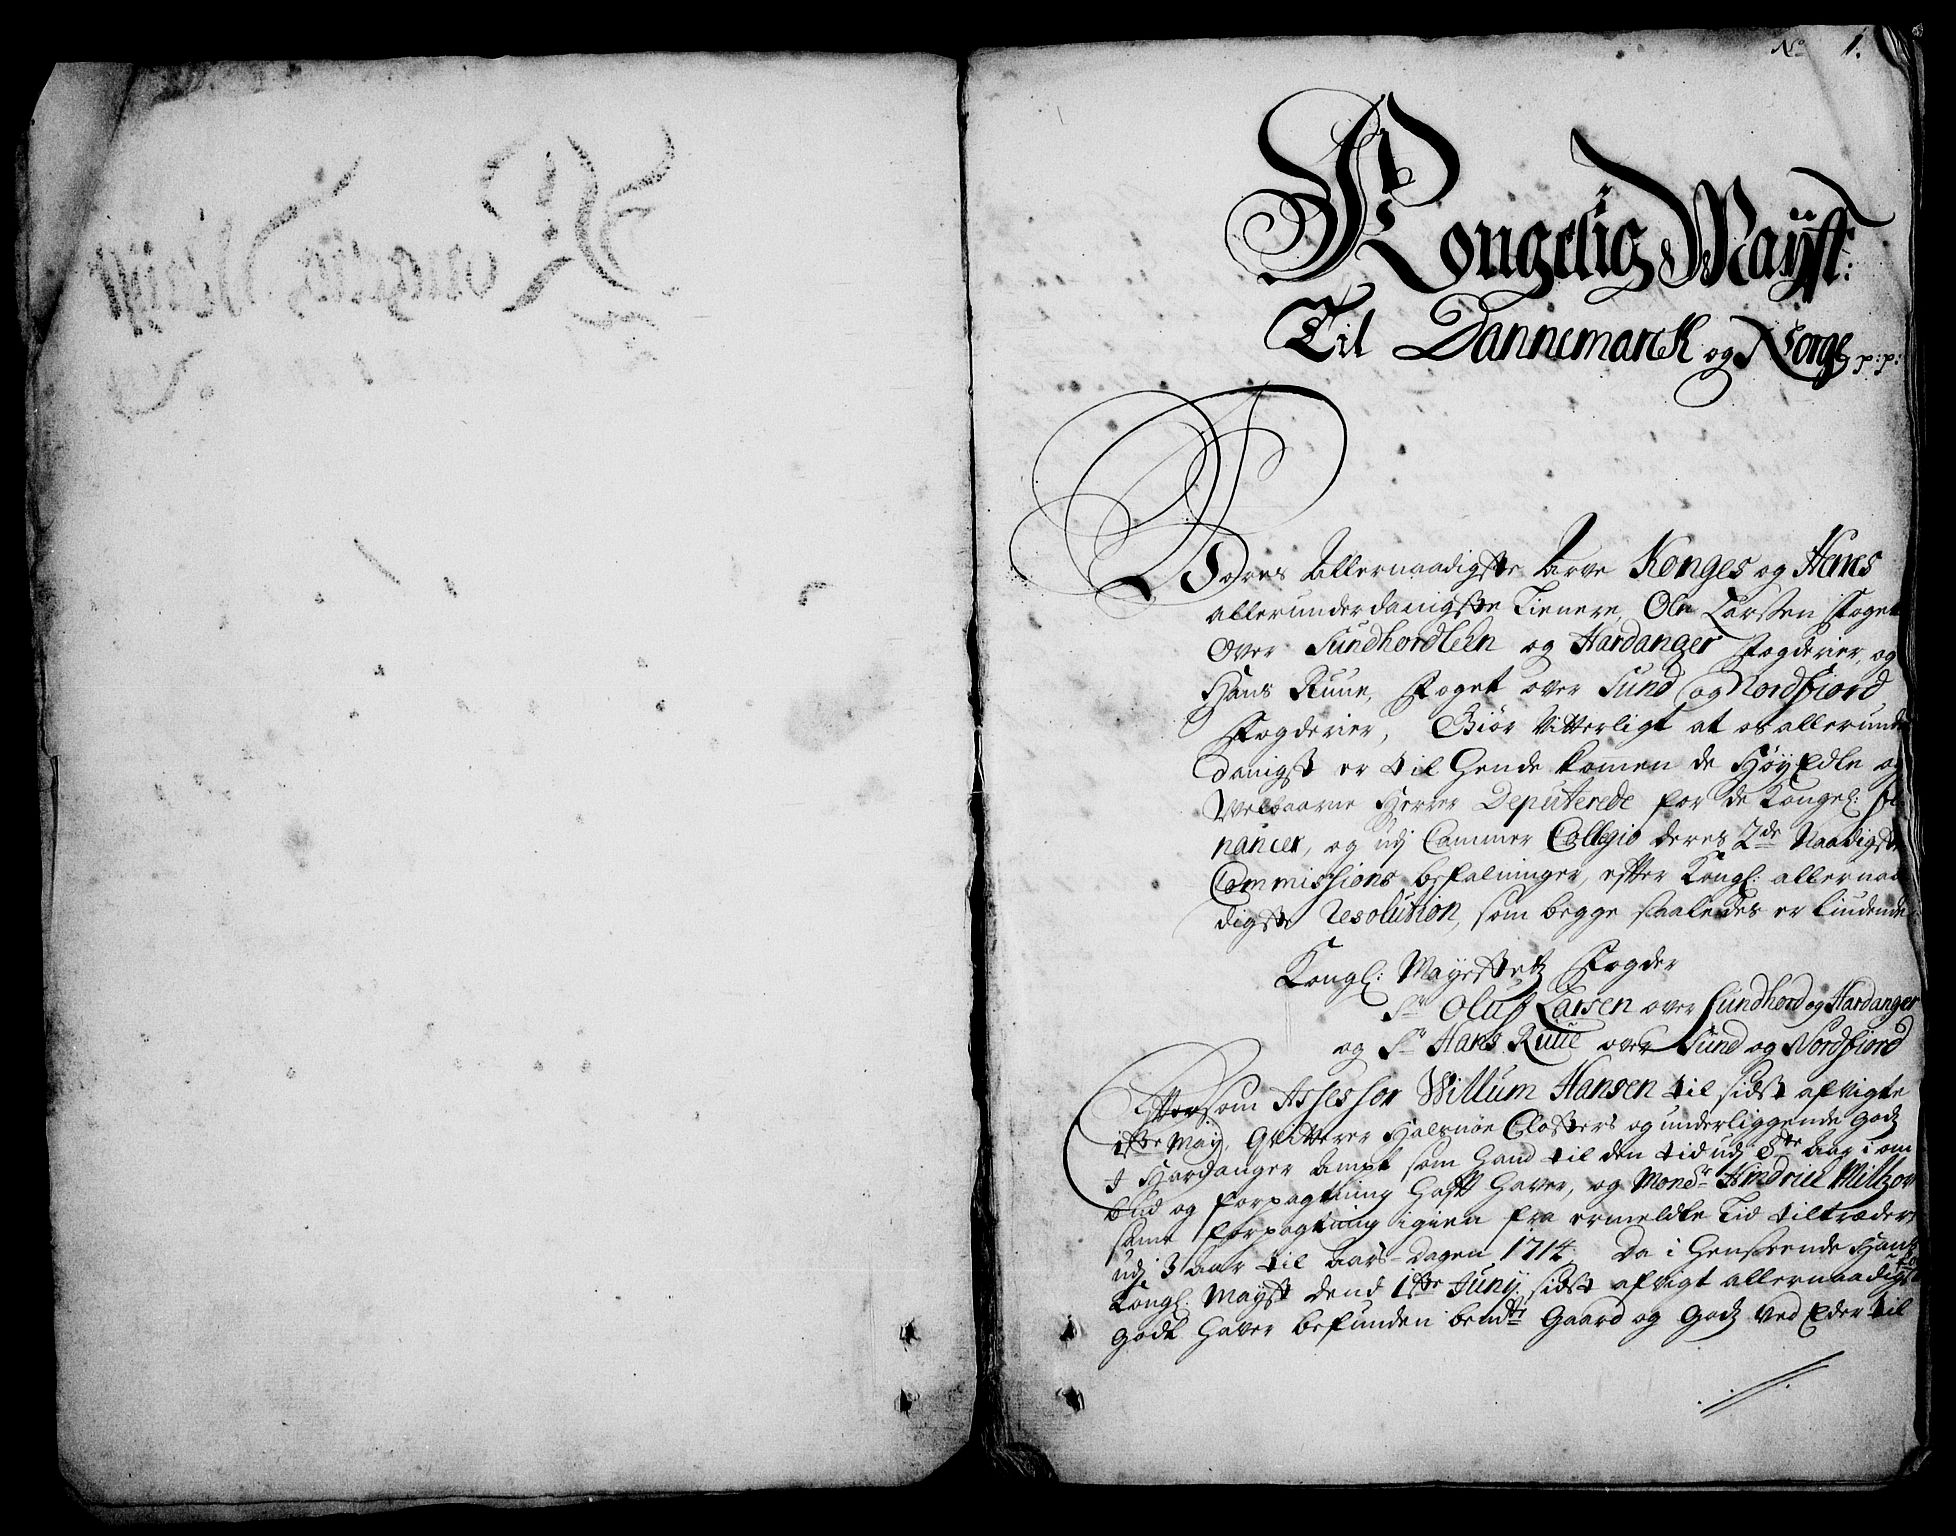 No 1.
Kongelig Mayst:
Til Dannemarck og Norge p:p:
Vores Allernaadigste Arve Konges og Hans
allerunderdanigste Tienere, Ole Larssen Foget
over Sundhordlehn og Hardanger Fogderier, og
Hans Ruue, Foget over Sund og Nordfiord
Fogderier, Giör Vitterligt at os allerunder
danigst er til Hende komen de HöyEdle og
Velbaarne Herrer Deputerede for de Kongel: fi-
nancer, og udj Cammer Collegio deres 2de Naadigste
Commissions befalninger, effter Kongl: allernaa
digste Resolution, som begge saaledes er liudende
Kongl: Mayestetz Fogder
Sr Oluf Larsen over Sundhord og Hardanger
og Sr Hans Ruue over Sund og Nordfiord
Eftersom Assessor Willum Hansen til sidst afvigte
1ste May, Qvitterer Halsnöe Closters og underliggende Godz
I Hardanger Ampt som Hand til den tid udj 8te Aar i om
bud og forpagtning hafft haver, og Monsr Hindrich Miltzow
samme forpagtning igien fra ermeldte Tid tiltræder
udj 3 Aar til Aars-Dagen 1714. Da i Henseende Hans
Kongl: Mayst dend 1ste Juny sidst afvigt allernaadigst for
godt haver befunden bemte Gaard og Godz ved Eder til